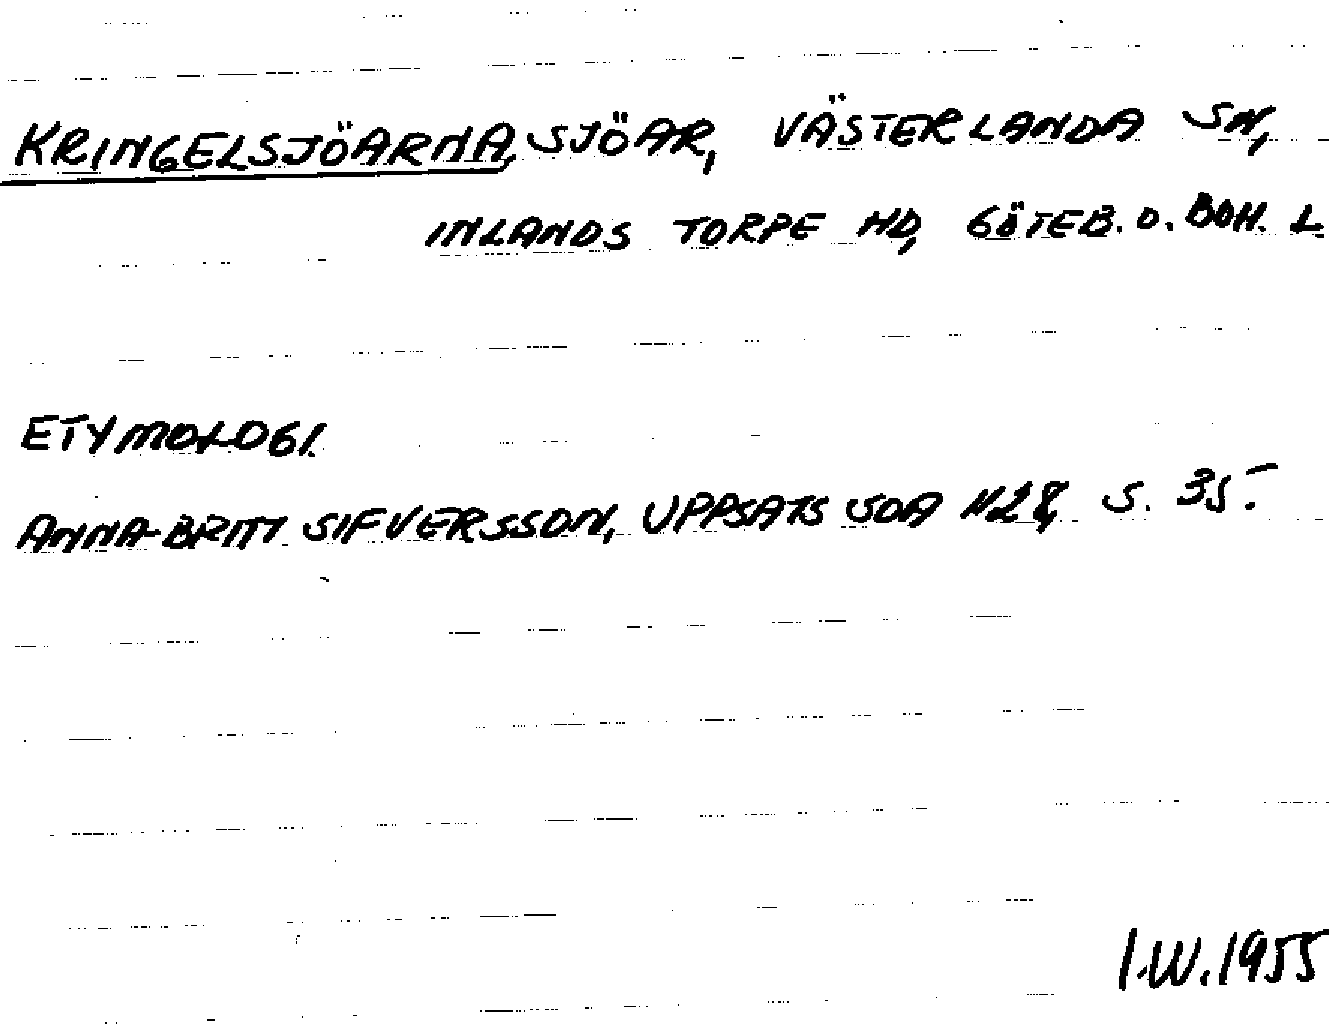 KRINGELSJÖARNA, SJÖAR, VÄSTERLANDA SN,
INLANDS TORPE HD, GÖTEB. O. BOH. L
ETYMOLOGI.
ANNA-BRITT SIFVERSSON, UPPSATS S. 35.
I.W. 1955